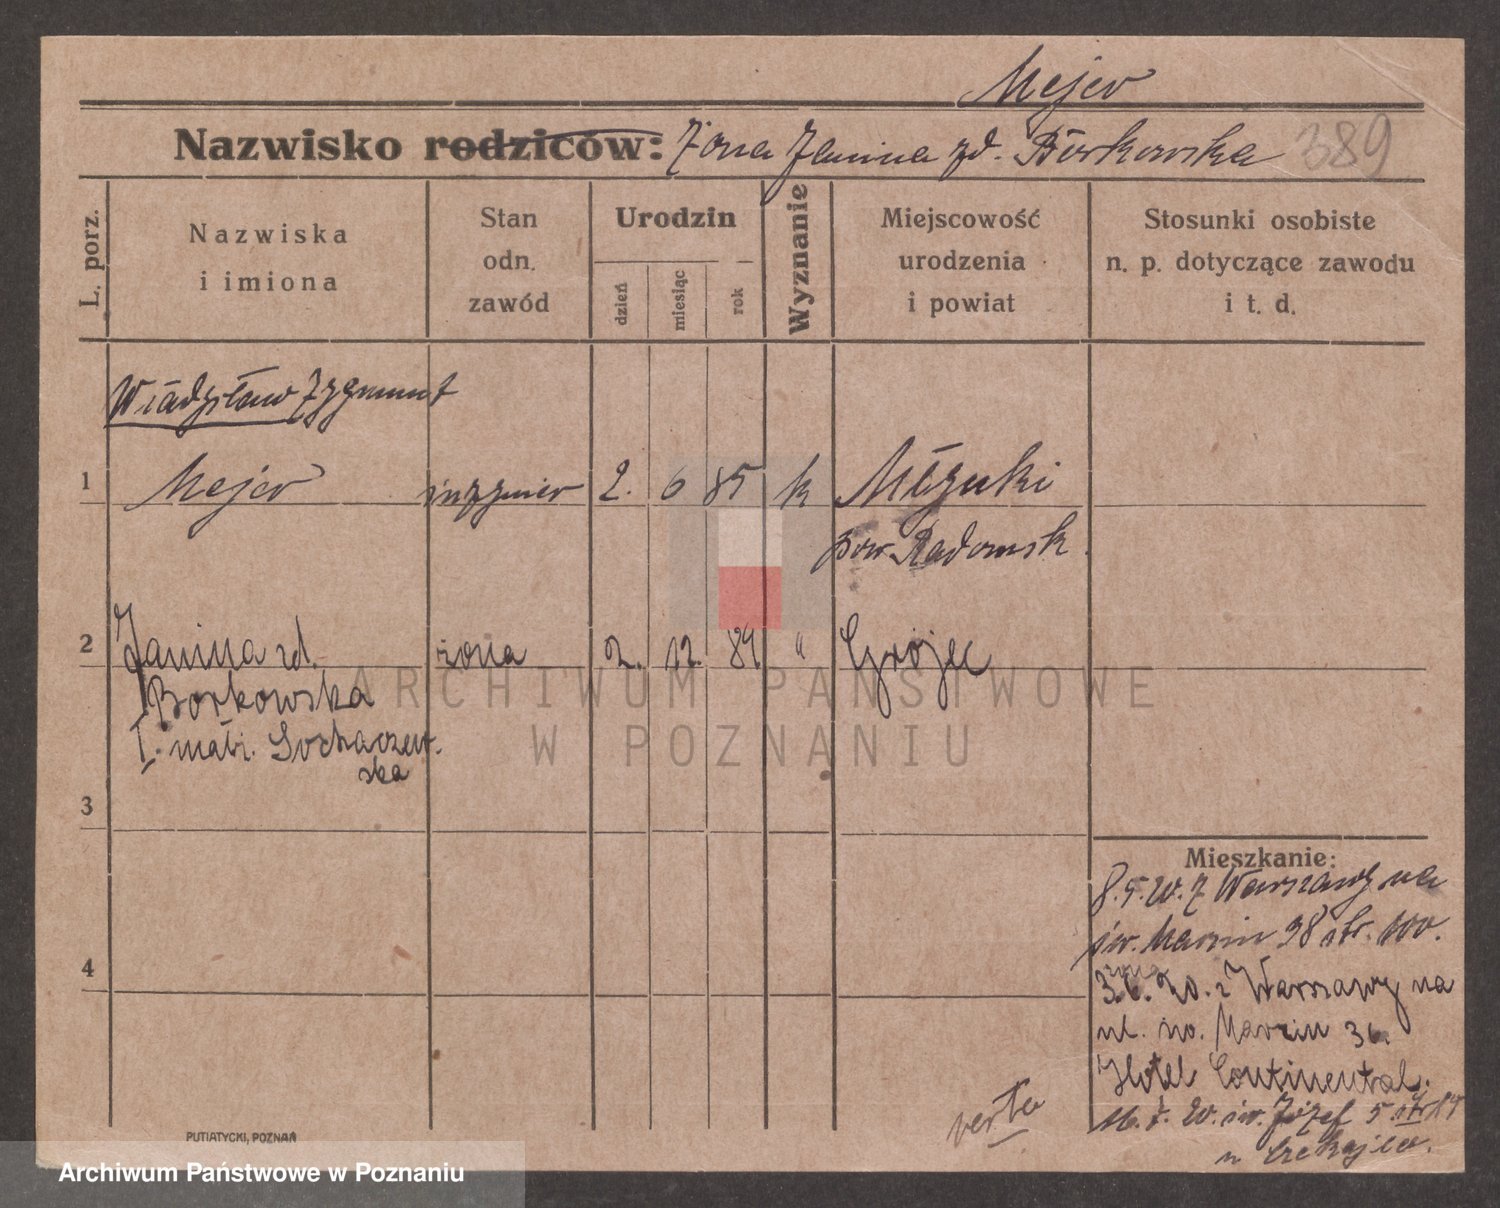 Mejer
Nazwisko rodziców: Żona Janina zd. Borkowska 389
L. porz.
Nazwiska
i imiona
Stan
odn.
zawód
Urodzin
dzień
miesiąc
rok
Wyznanie
Miejscowość
urodzenia
i powiat
Stosunki osobiste
n. p. dotyczące zawodu
i t. d.
Władysław Zygmunt
1 Mejer inżynier 2. 6 85 k
pow. Radomsk.
2 Janina zd. żona 2. 12. 84 " Grójec
Borkowska
I. małż. Sochaczew-
ska
3
4
Mieszkanie:
8.5.20. z Warszawy na
św. Marcin 38 str.
żona
3.6.20. z Warszawy na
ul. św. Marcin 36.
Hotel Continental.
św. Józef 5
u
verte
PUTIATYCKI, POZNAŃ
ARCHIWUM PAŃSTWOWE
W POZNANIU
Archiwum Państwowe w Poznaniu